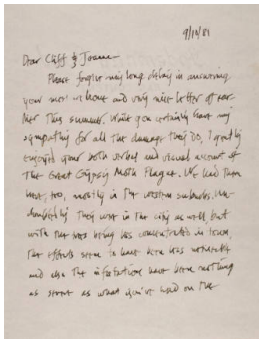 9/10/81
Dear Cliff & Joanne—
Please forgive my long delay in answering
your most welcome and very nice letter of ear-
lier this summer. While you certainly have my
sympathy for all the damage they do, I greatly
enjoyed your both verbal and visual account of
The Great Gypsy Moth Plague. We had them
here, too, mostly in the western suburbs. Un-
doubtedly they were in the city as well, but
with the trees being less concentrated in town,
the effects seem to have been less noticeable
and also the infestations have been nothing
as severe as what you've had on the